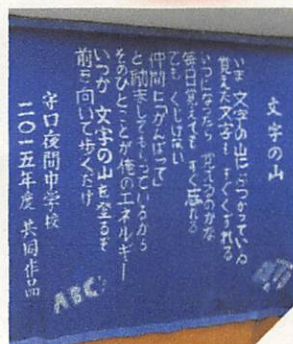 文字の山
いま 文字の山に ぶつかっている
覚えた文字も すぐくずれる
いつになったら 覚えるのかな
毎日覚えても すぐ忘れる
でも くじけない
仲間に「がんばって」
と励ましてもらっているから
そのひとことが俺のエネルギー
いつか 文字の山を登るぞ
前を向いて歩くだけ
守口夜間中学校
二〇一五年度 共同作品
ABC